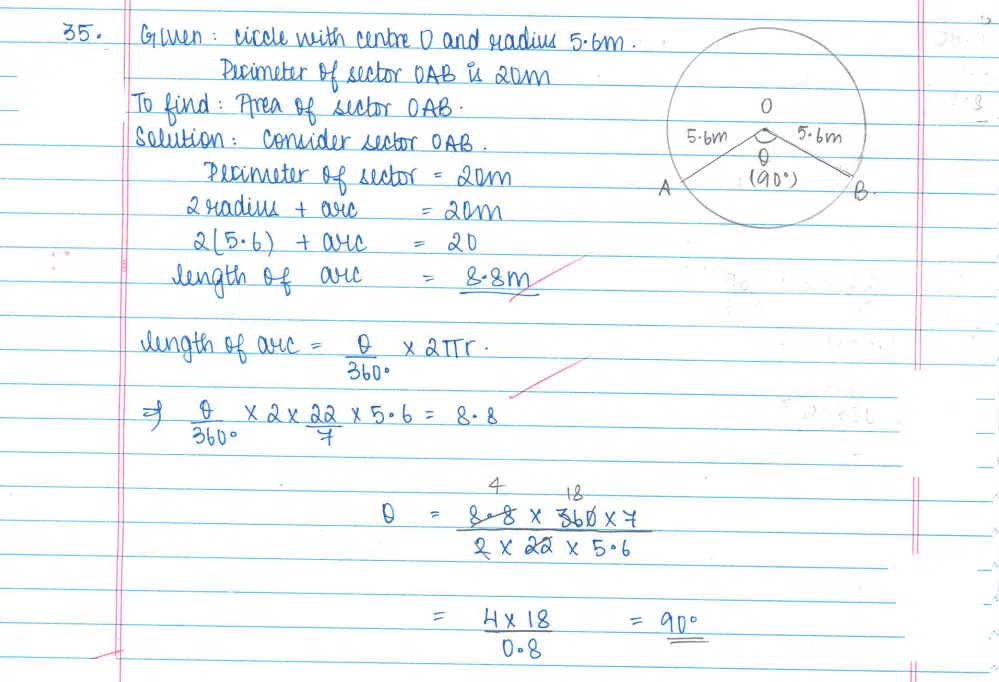 35. Given: circle with centre O and radius 5.6m.
Perimeter of sector OAB is 20m
To find: Area of sector OAB.
Solution: Consider sector OAB.
Perimeter of sector = 20m
2 radius + arc = 20m
2(5.6) + arc = 20
length of arc = 8.8m
O
5.6m 5.6m
θ
(90°)
A B.
length of arc = θ/360° × 2πr.
⇒ θ/360° × 2 × 22/7 × 5.6 = 8.8
4 18
θ = 8.8 × 360 × 7 / 2 × 22 × 5.6
= 4 × 18 / 0.8 = 90°